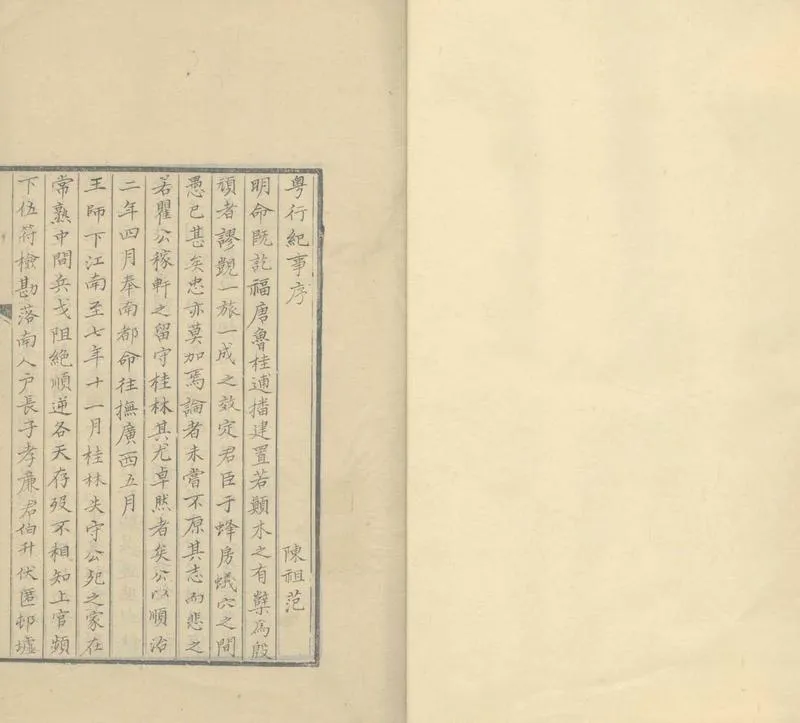 粤行紀事序 陳祖范
明命既訖福唐魯桂逋播建置若顛木之有櫱為殷
頑者謬覬一旅一成之效定君臣于蜂房蟻穴之間
愚已甚矣忠亦莫加焉論者未嘗不原其志而悲之
若瞿公稼軒之留守桂林其尤卓然者矣公以順治
二年四月奉南都命往撫廣西五月
王師下江南至七年十一月桂林失守公死之家在
常熟中間兵戈阻絶順逆各天存歿不相知上官頻
下伍符檢勘落南人户長子孝廉君伯升伏匿邨墟